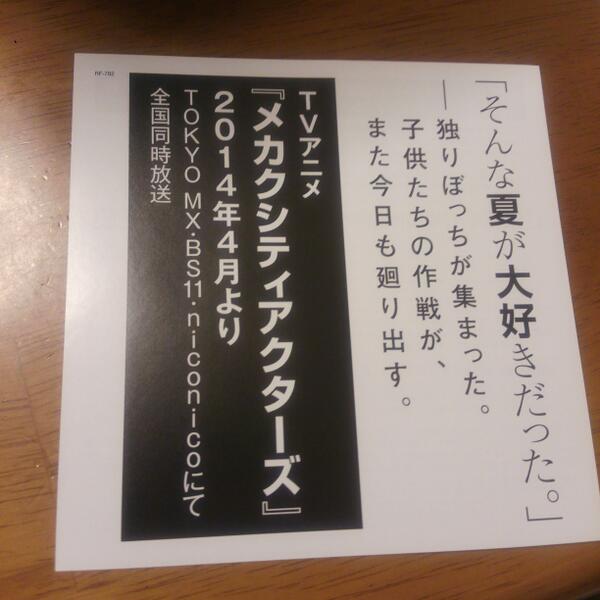 「そんな夏が大好きだった。」
―独りぼっちが集まった。
子供たちの作戦が、
また今日も廻り出す。
TVアニメ
『メカクシティアクターズ』
2014年4月より
TOKYO MX・BS11・niconicoにて
全国同時放送
HF-702